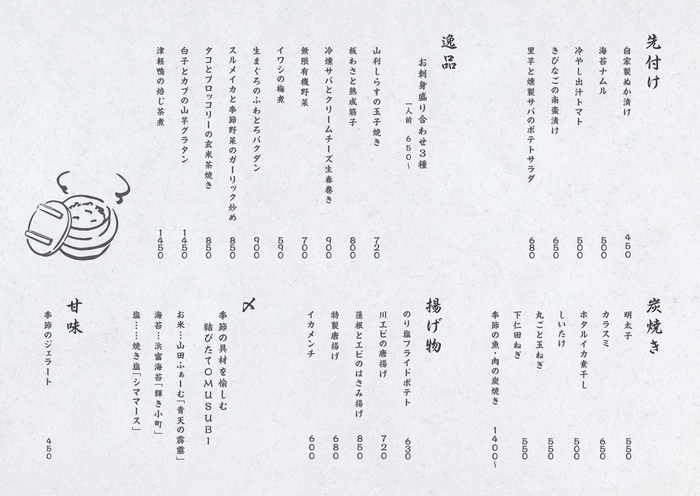 先付け
自家製ぬか漬け 450
海苔ナムル 500
冷やし出汁トマト 500
きびなごの南蛮漬け 650
里芋と燻製サバのポテトサラダ 680
逸品
お刺身盛り合わせ3種
一人前 650~
山利しらすの玉子焼き 720
板わさと熟成筋子 800
冷燻サバとクリームチーズ生春巻き 900
無限有機野菜 700
イワシの梅煮 590
生まぐろのふわとろバクダン 900
スルメイカと季節野菜のガーリック炒め 850
タコとブロッコリーの玄米茶焼き 850
白子とカブの山芋グラタン 1450
津軽鴨の焙じ茶煮 1450
炭焼き
明太子 550
カラスミ 650
ホタルイカ素干し 500
しいたけ 550
丸ごと玉ねぎ 550
下仁田ねぎ 550
季節の魚・肉の炭焼き 1400~
揚げ物
のり塩フライドポテト 630
川エビの唐揚げ 720
蓮根とエビのはさみ揚げ 850
特製唐揚げ 680
イカメンチ 600
〆
季節の具材を愉しむ
結びたてOMUSUBI
お米…山田ふぁーむ「青天の霹靂」
海苔…浜富海苔「輝き小町」
塩……焼き塩「シママース」
甘味
季節のジェラート 450